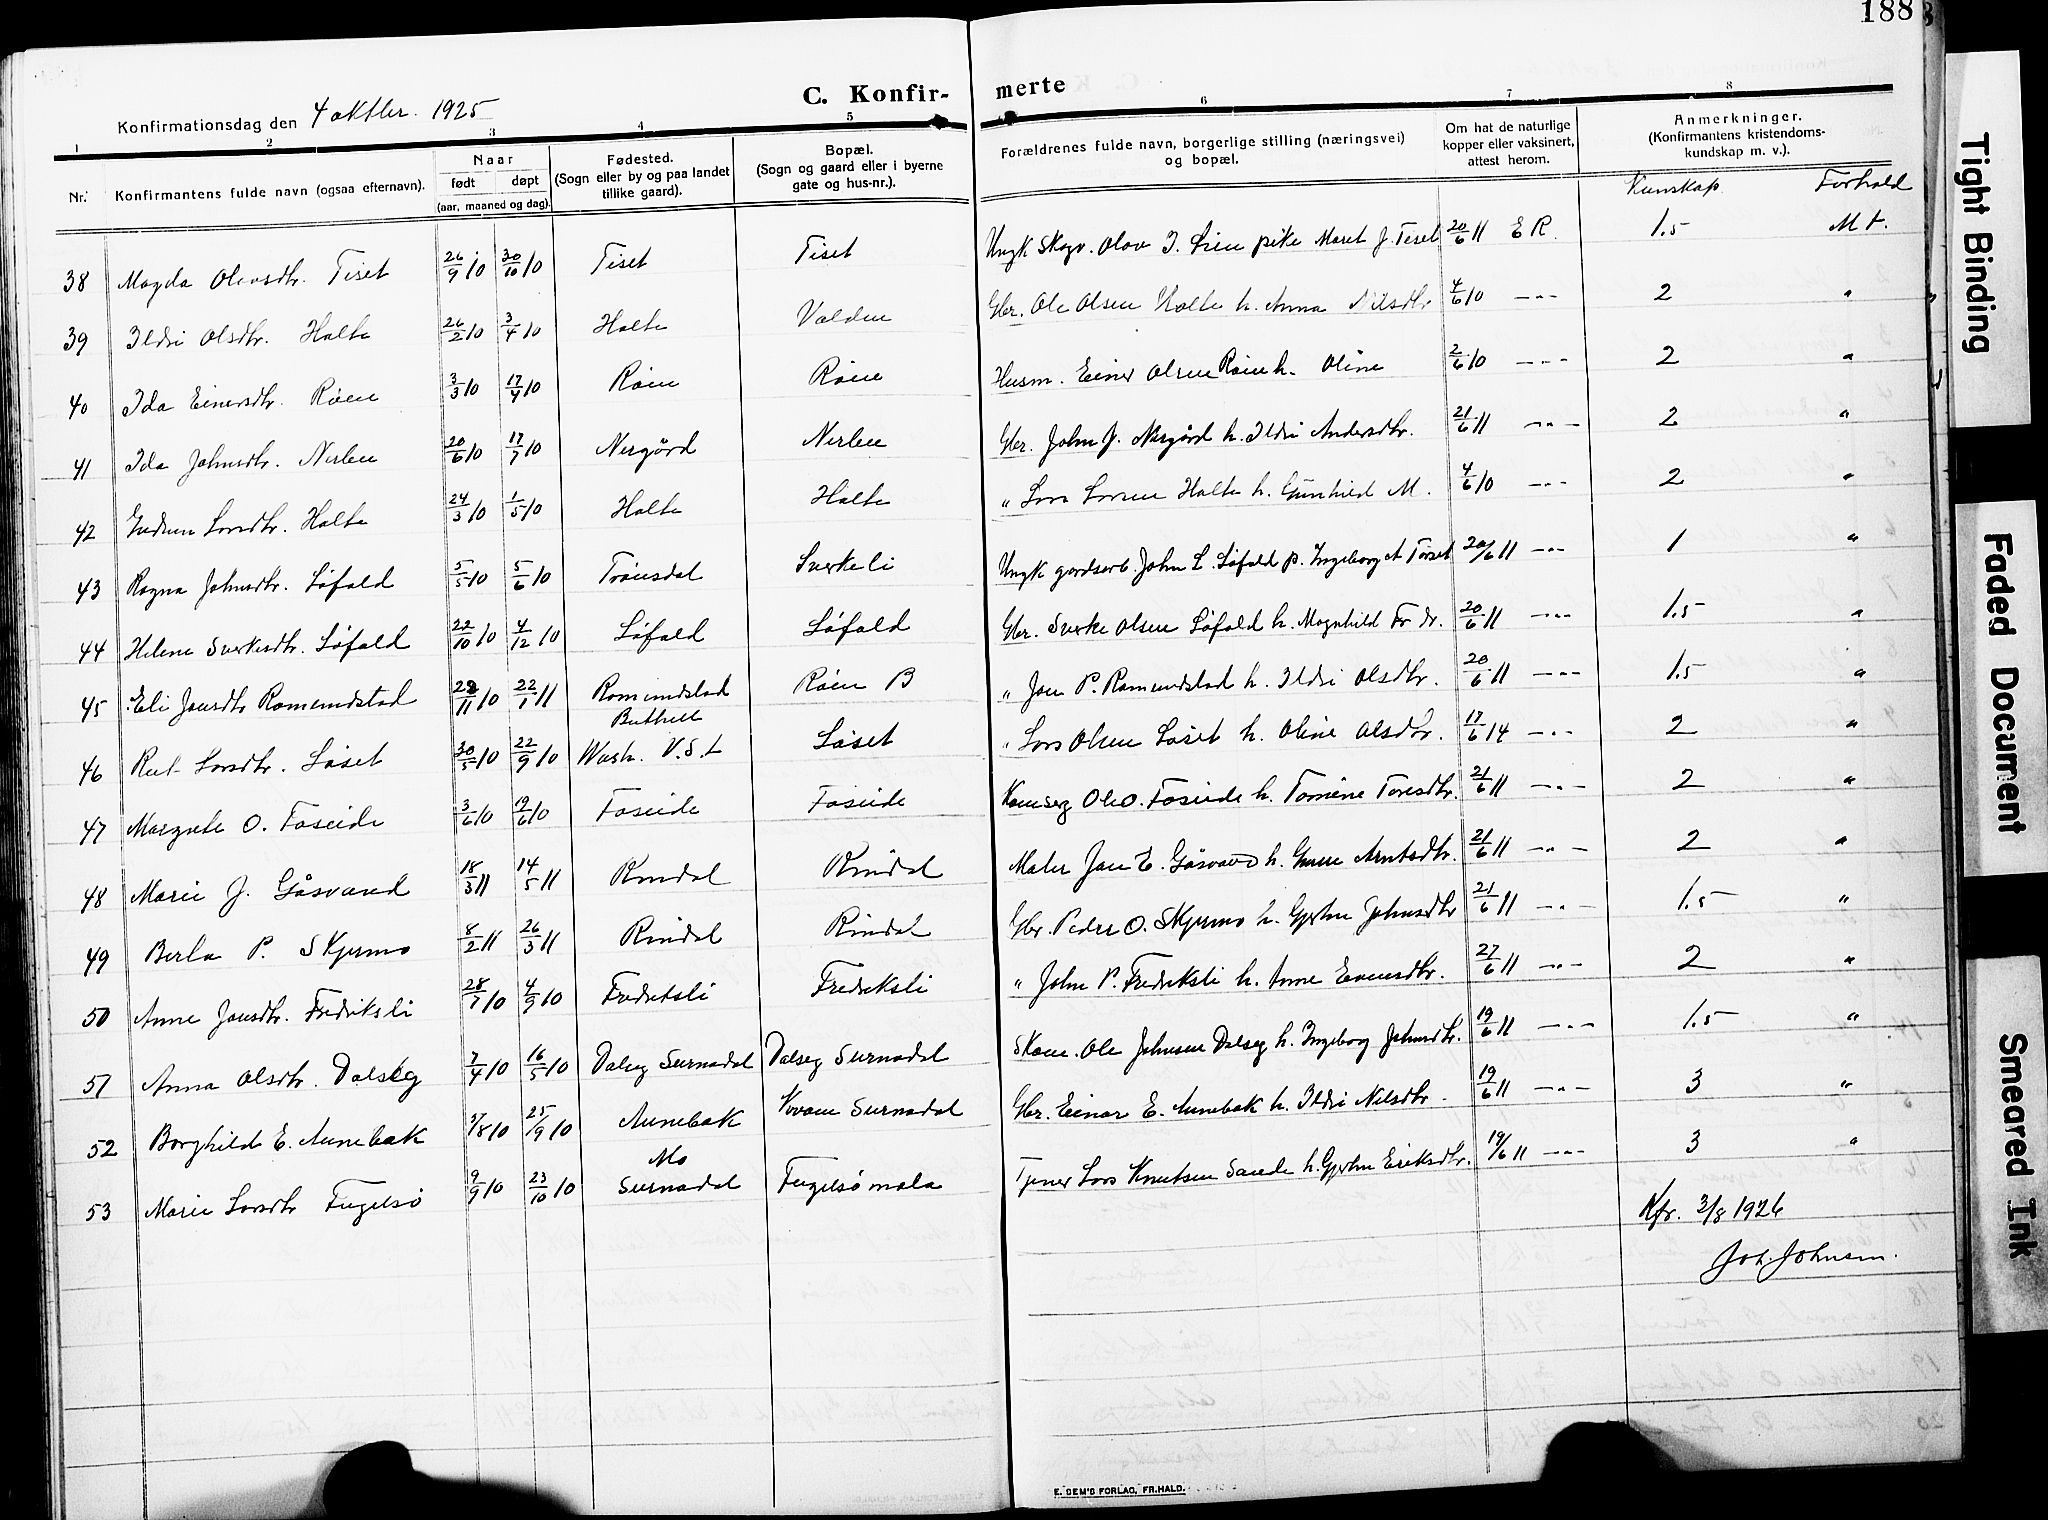 188
C. Konfir- merte
Konfirmationsdag den 4 oktbr. 1925
1 2 3 4 5 6 7 8
Nr. Konfirmantens fulde navn (ogsaa efternavn). Naar født døpt (aar, maaned og dag). Fødested. (Sogn eller by og paa landet tillike gaard). Bopæl. (Sogn og gaard eller i byerne gate og hus-nr.). Forældrenes fulde navn, borgerlige stilling (næringsvei) og bopæl. Om hat de naturlige kopper eller vaksinert, attest herom. Anmerkninger. (Konfirmantens kristendoms-kundskap m. v.).
Kunskap. Forhold
38 Magda Olavsdtr. Tiset 26/9 10 30/10 10 Tiset Tiset Ungk Skogv. Olav J. Lien pike Maret J. Tiset 20/6 11 E R. 1.5 M t.
39 Ildri Olsdtr. Holte 26/2 10 3/4 10 Holte Valden Gbr. Ole Olsen Holte h. Anna Nilsdtr 4/6 10 -"- 2 "
40 Ida Einersdtr. Røen 3/3 10 17/4 10 Røen Røen Husm. Einer Olsen Røen h. Oline 2/6 10 -"- 2 "
41 Ida Johnsdtr. Nerlien 20/6 10 17/7 10 Nergård Nerlien Gbr. John J. Nergård h. Ildri Andersdtr. 21/6 11 -"- 2 "
42 Gudrun Larsdtr. Holte 24/3 10 1/5 10 Holte Holte " Lars Larsen Holte h. Gunhild M. 4/6 10 -"- 2 "
43 Ragna Johnsdtr. Løfald 5/5 10 5/6 10 Trønsdal Sverkeli Ungk gardsarb. John L. Løfald p. Ingeborg A Tørset 20/6 11 -"- 1 "
44 Helene Sverkesdtr. Løfald 22/10 10 4/12 10 Løfald Løfald Gbr. Sverke Olsen Løfald h. Magnhild Fr dr. 20/6 11 -"- 1.5 "
45 Eli Jonsdtr Romundstad 28/11 10 22/1 11 Romundstad Røen B " Jon P. Romundstad h. Ildri Olsdtr. 20/6 11 -"- 1.5 "
46 Rut Larsdtr. Løset 30/5 10 22/9 10 Wash. V.S.L Løset " Lars Olsen Løset h. Oline Olsdtr. 17/6 14 -"- 2 "
47 Margrete O. Foseide 3/6 10 19/6 10 Foseide Foseide Ole O. Foseide h. Tomine Toresdtr. 21/6 11 -"- 2 "
48 Marie J. Gåsvand 18/3 11 14/5 11 Rindal Rindal Maler Jon E. Gåsvand h. Guru Arntsdtr. 21/6 11 -"- 2 "
49 Berta P. Skjermo 8/2 11 26/3 11 Rindal Rindal Gbr. Peder O. Skjermo h. Gjertru Johnsdtr 21/6 11 -"- 1.5 "
50 Anne Jonsdtr. Fredriksli 28/7 10 4/9 10 Fredriksli Fredriksli " John P. Fredriksli h. Anne Evensdtr. 27/6 11 -"- 2 "
51 Anna Olsdtr. Dalseg 7/4 10 16/5 10 Dalseg Surnadal Dalseg Surnadal Skom. Ole Johnsen Dalseg h. Ingeborg Johnsdtr. 19/6 11 -"- 1.5 "
52 Borghild E. Aunebak 5/8 10 25/9 10 Aunebak Kvam Surnadal Gbr. Einar E. Aunebak h. Ildri Nilsdtr. 19/6 11 -"- 3 "
53 Marie Larsdtr Fugelsø 9/9 10 23/10 10 Mo Surnadal Fugelsømala Tjener Lars Knutsen Sande h. Gjertru Eriksdtr. 19/6 11 -"- 3 "
Kfr. 3/8 1926
Joh. Johnsen.
E. SEM'S FORLAG, FR.HALD.
Tight Binding
Faded Document
Smeared Ink